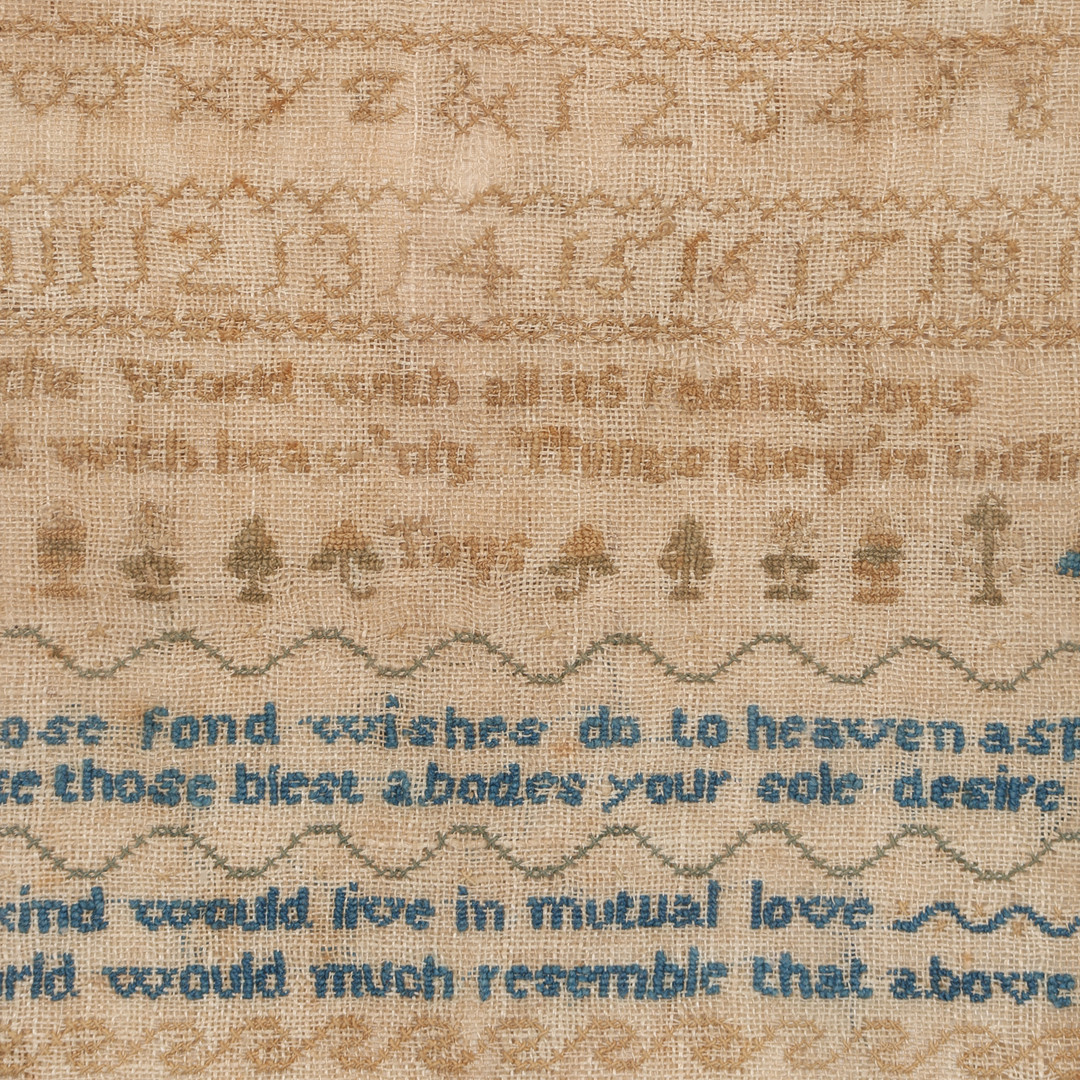 w x y z & 1 2 3 4 5 8
11 12 13 14 15 16 17 18 1
the World with all its fading Joys
with heav'nly Things they're triflin
Toys
ose fond wishes do to heaven asp
se those blest abodes your sole desire
kind would live in mutual love
rld would much resemble that above